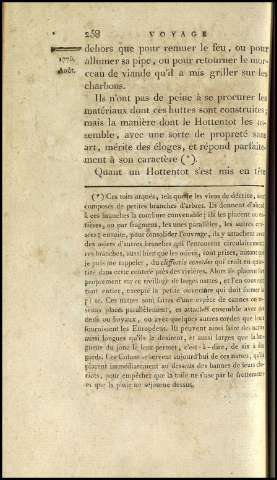 258 VOYAGE
dehors que pour remuer le feu, ou pour
1775.
Août.
allumer sa pipe, ou pour retourner le mor-
ceau de viande qu'il a mis griller sur les
charbons.
Ils n'ont pas de peine à se procurer les
matériaux dont ces huttes sont construites;
mais la manière dont le Hottentot les as-
semble, avec une sorte de propreté sans
art, mérite des éloges, et répond parfaite-
ment à son caractère (*).
Quant un Hottentot s'est mis en tête
(*) Ces toits arqués, tels que je les viens de décrire, sont
composés de petites branches d'arbres. Ils donnent d'abord
à ces branches la courbure convenable; ils les placent en-
tières, ou par fragment, les unes parallèles, les autres croi-
sées; ensuite, pour consolider l'ouvrage, ils y attachent avec
des osiers d'autres branches qui l'entourent circulairement.
ces branches, aussi bien que les osiers, sont prises, autant que
je puis me rappeler, du cliffortia conoides qui croît en quan-
tité dans cette contrée près des rivières. Alors ils placent
proprement sur ce treillage de larges nattes, et l'en couvrent
tout entier, excepté la petite ouverture qui doit former la
porte. Ces nattes sont faites d'une espèce de cannes ou ro-
seaux placés parallèlement, et attachés ensemble avec des
nerfs ou boyaux, ou avec quelques autres cordes que leur
fournissent les Européens. Ils peuvent ainsi faire des nattes
aussi longues qu'ils le desirent, et aussi larges que la lon-
gueur du jonc le leur permet, c'est-à-dire, de six à dix
pieds. Les Colons se servent aujourd'hui de ces nattes, qu'ils
placent immédiatement au dessous des bannes de leurs cha-
riots, pour empêcher que la toile ne s'use par le frottement
et que la pluie ne séjourne dessus.